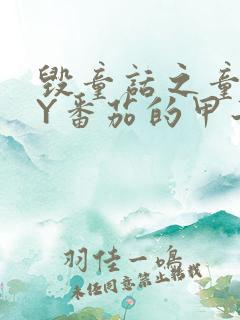 毁童话之童
Y番茄的甲
羽佳一鸣
未经同意禁止转载